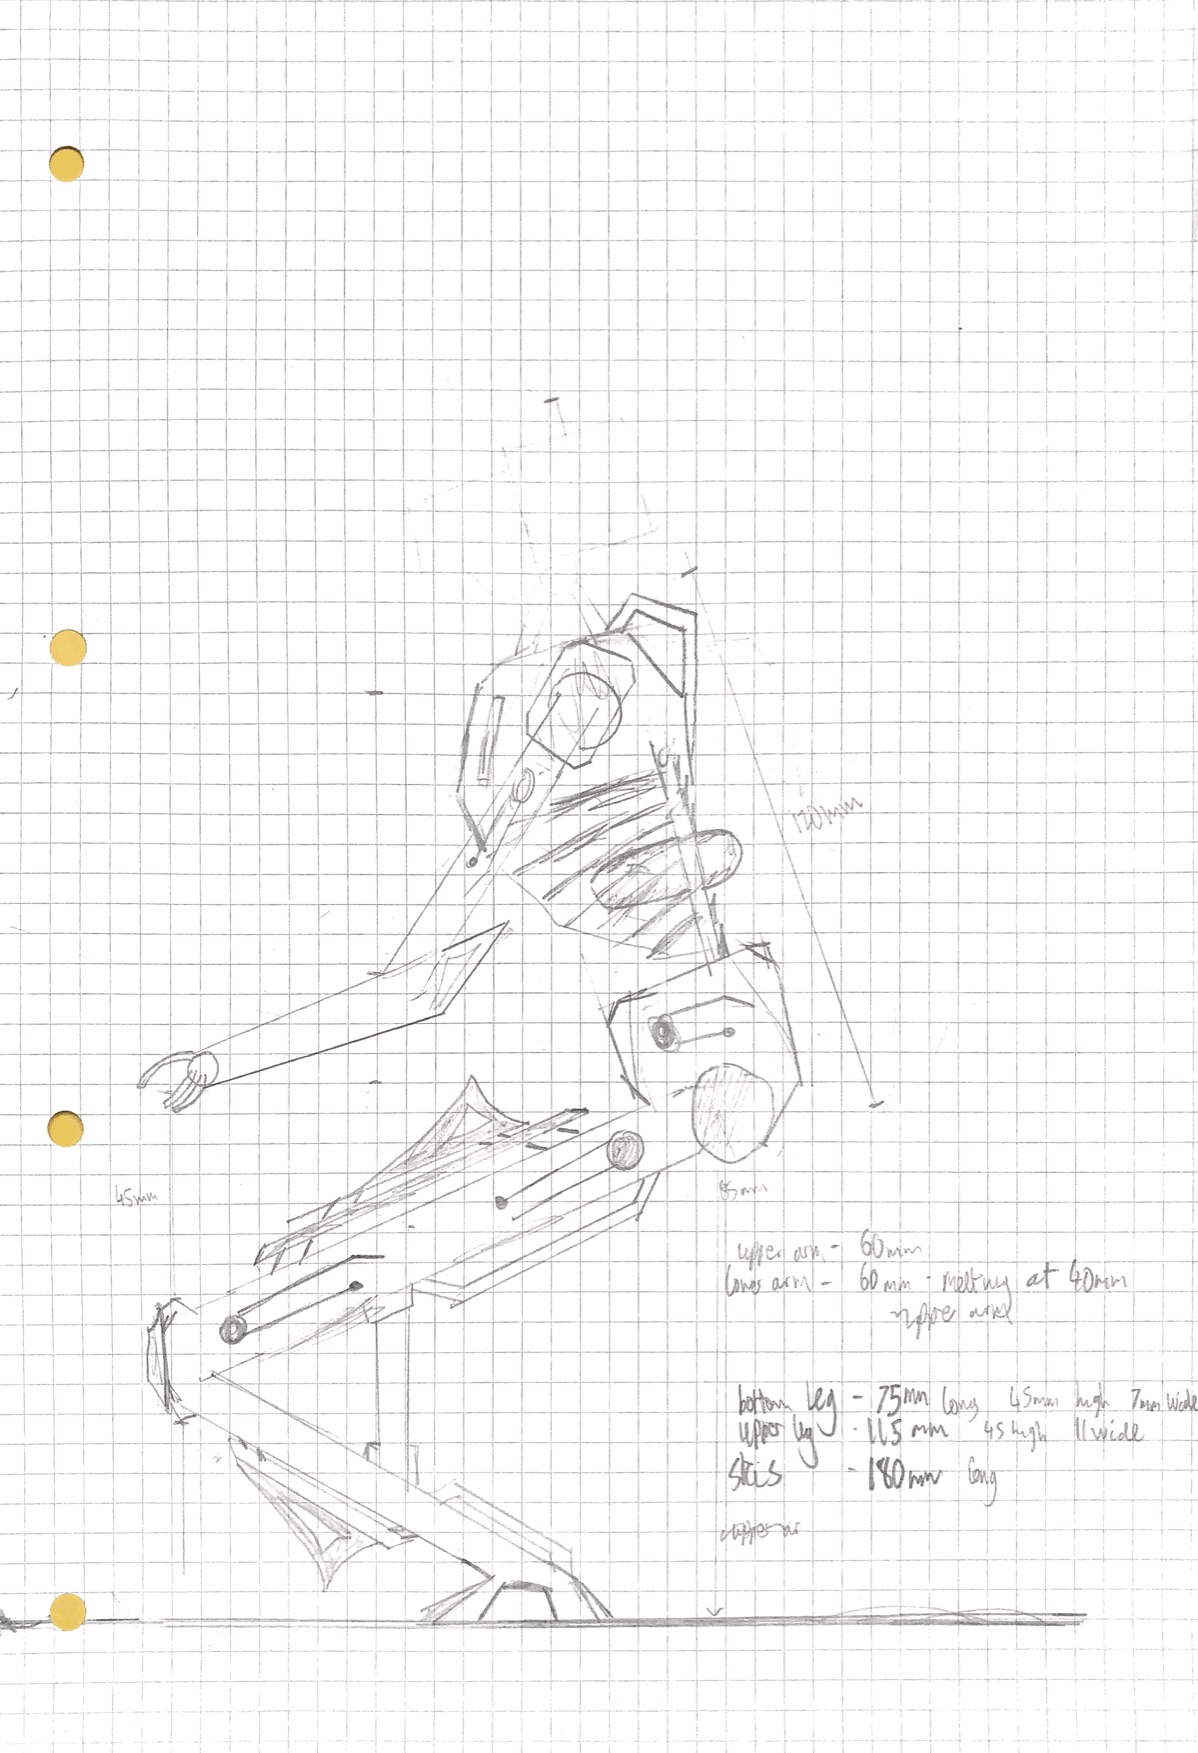 120mm
45mm
85mm
upper arm - 60mm
lower arm - 60mm - melting at 40mm
upper arm
bottom leg - 75mm long 45mm high 7mm wide
upper leg - 115mm 45 high 11 wide
skis - 180mm long
upper ar